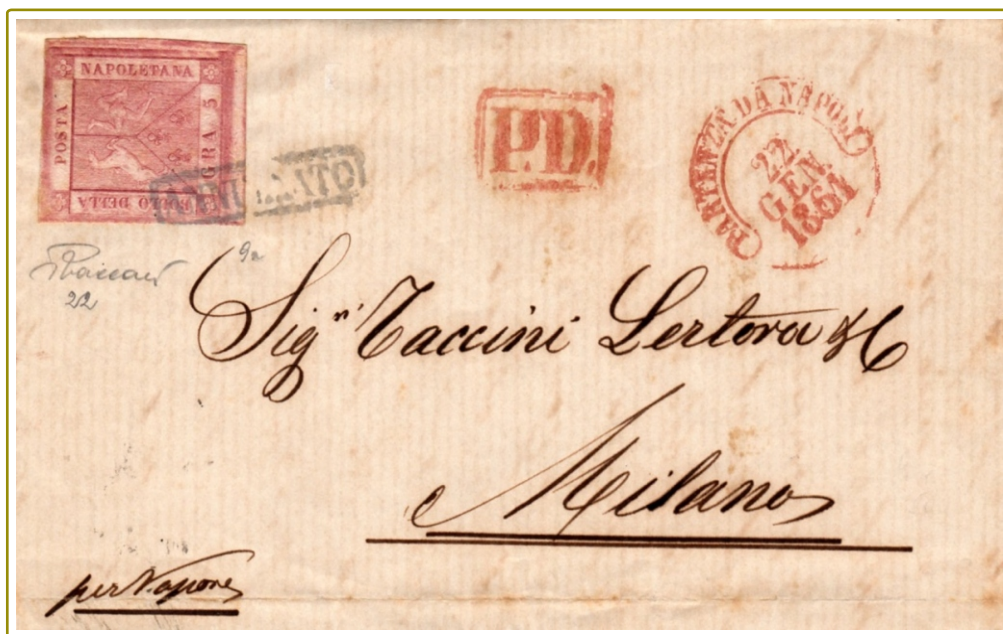 NAPOLETANA
POSTA
GRA 5
BOLLO DELLA
P.D.
PARTENZA DA NAPOLI
22
GEN
1861
9a
22
Sigri Taccini Lertora & C
Milano
per Vapore